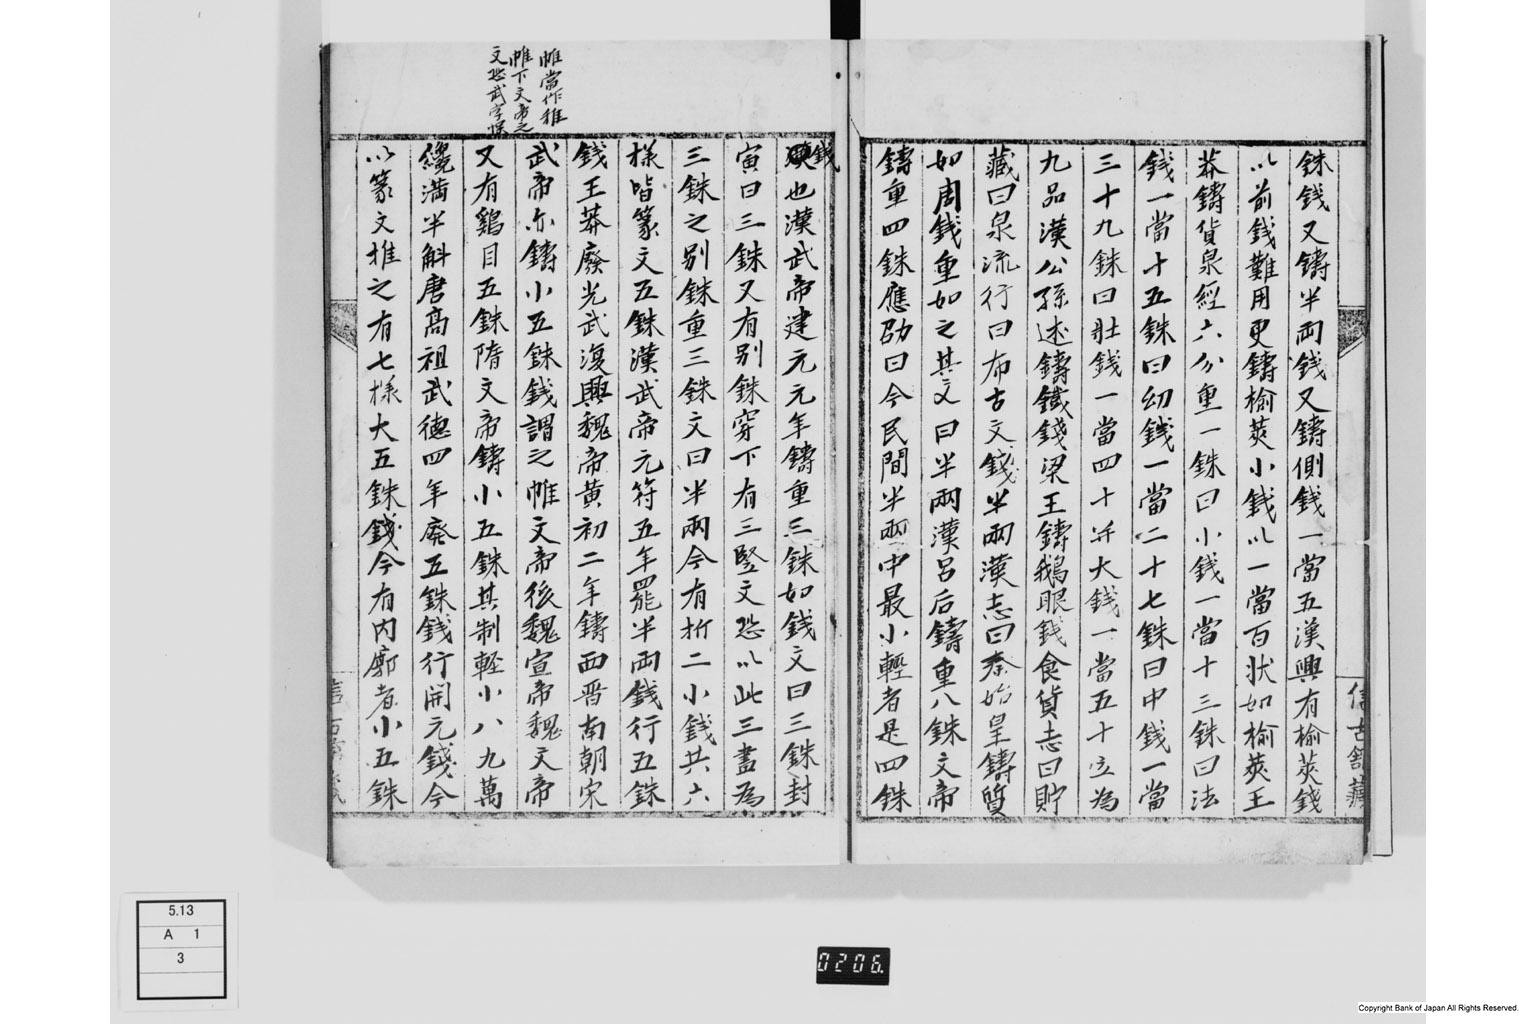 銖錢又鑄半両錢又鑄側錢一當五漢興有榆莢錢
以前錢難用更鑄榆莢小錢以一當百狀如榆莢王
莽鑄貨泉經六分重一銖曰小錢一當十三銖曰法
錢一當十五銖曰幼錢一當二十七銖曰中錢一當
三十九銖曰壯錢一當四十大錢一當五十立為
九品漢公孫述鑄鐵錢梁王鑄鵝眼錢食貨志曰貯
藏曰泉流行曰布古文錢半兩漢志曰秦始皇鑄質
如周錢重如之其文曰半兩漢呂后鑄重八銖文帝
鑄重四銖應劭曰今民間半兩中最小輕者是四銖
錢也漢武帝建元元年鑄重三銖如錢文曰三銖封
寅曰三銖又有別銖穿下有三竪文恐以此三畫為
三銖之别銖重三銖文曰半兩今有析二小錢共六
樣皆篆文五銖漢武帝元符五年罷半両錢行五銖
錢王莽廢光武復興魏帝黃初二年鑄西晋南朝宋
武帝亦鑄小五銖錢謂之帷文帝後魏宣帝魏文帝
又有鷄目五銖隋文帝鑄小五銖其制軽小八九萬
纔満半斛唐高祖武德四年廢五銖錢行開元錢今
以篆文推之有七樣大五銖錢今有内廓者小五銖
帷當作稚
帷下文帝之
文恐武字誤
信古舘藏
5.13
A 1
3
0206.
Copyright Bank of Japan All Rights Reserved.